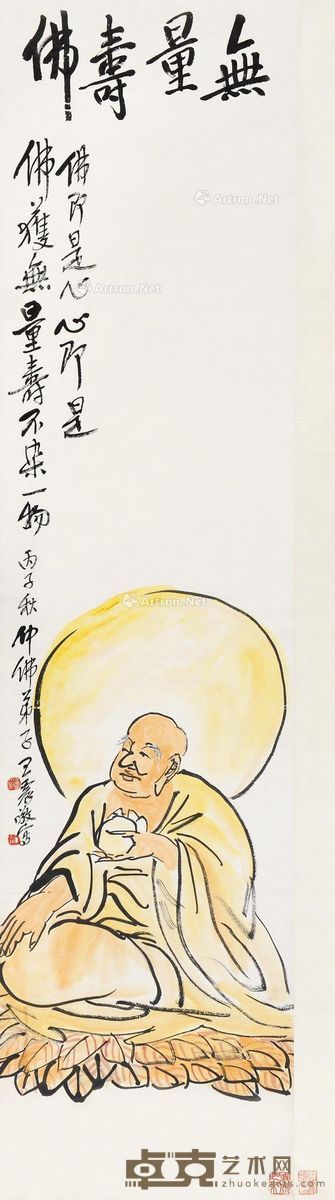 無量壽佛
佛即是心心即是
佛獲無量壽不染一物
丙子秋仲佛弟子王震敬寫
Artron.Net
Artron.Net
Artron.Net
Artron.Net
卓克艺术网
www.zhuokearts.com